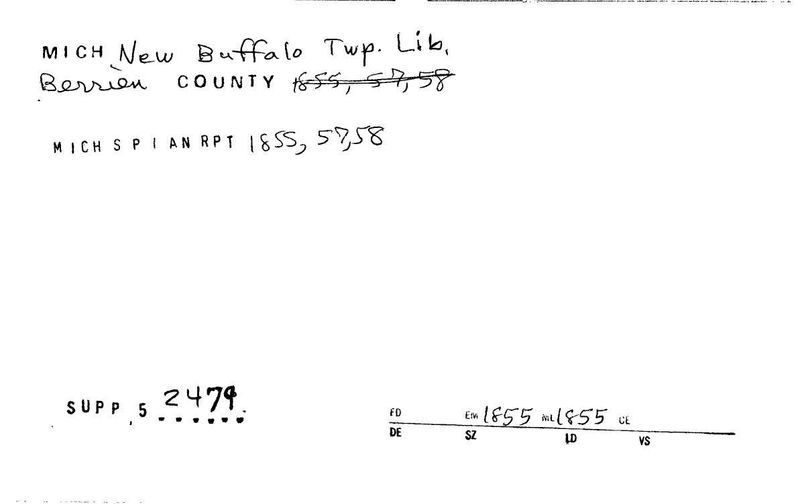 MICH New Buffalo Twp. Lib.
Berrien COUNTY 1855, 57, 58
MICH S P I AN RPT 1855, 57, 58
SUPP. 5 2479
FD EM 1855 ML 1855 CE
DE SZ LD VS